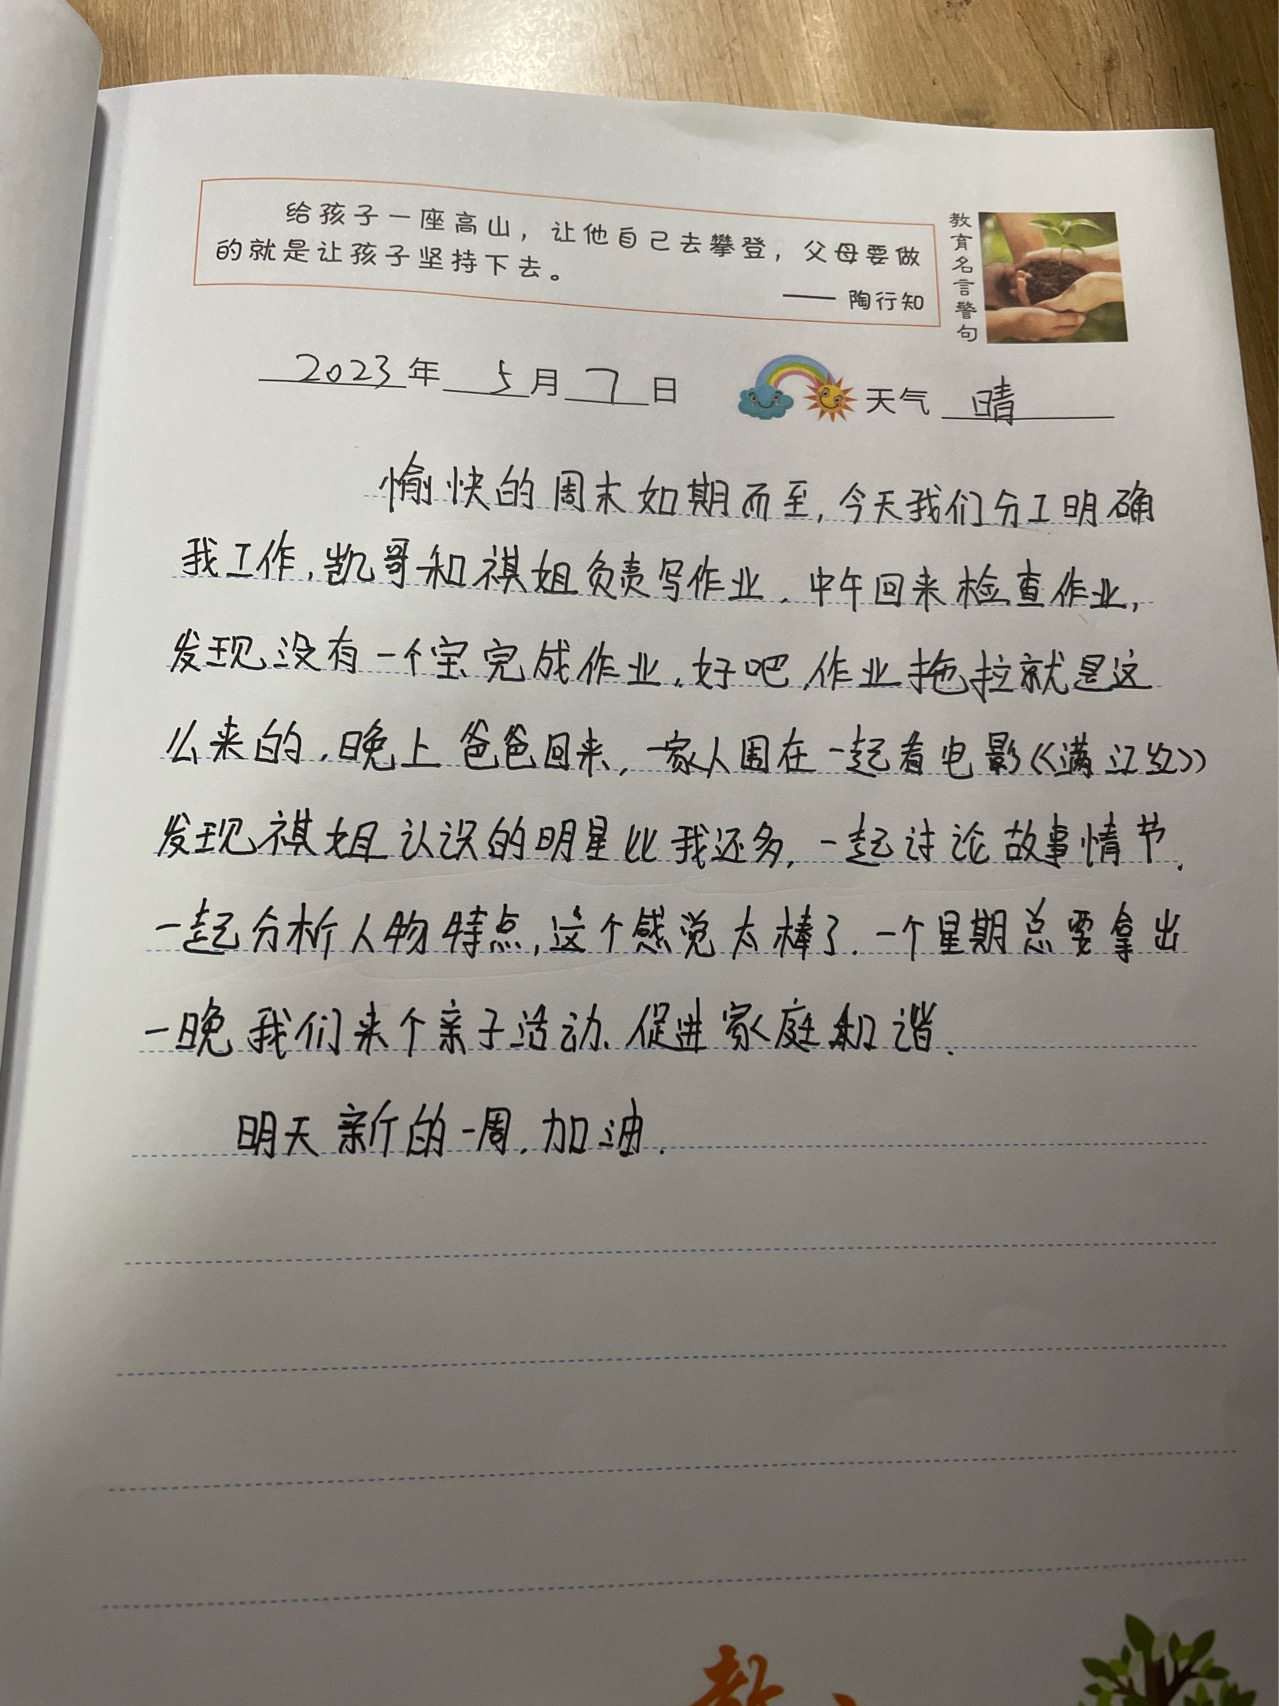 给孩子一座高山，让他自己去攀登，父母要做
的就是让孩子坚持下去。
—— 陶行知
教育名言警句
2023年 5月7日 天气 晴
愉快的周末如期而至，今天我们分工明确
我工作，凯哥和祺姐负责写作业．中午回来检查作业，
发现没有一个宝完成作业．好吧，作业拖拉就是这
么来的．晚上爸爸回来，一家人围在一起看电影《满江红》
发现祺姐认识的明星比我还多．一起讨论故事情节．
一起分析人物特点，这个感觉太棒了．一个星期总要拿出
一晚我们来个亲子活动、促进家庭和谐．
明天新的一周．加油．